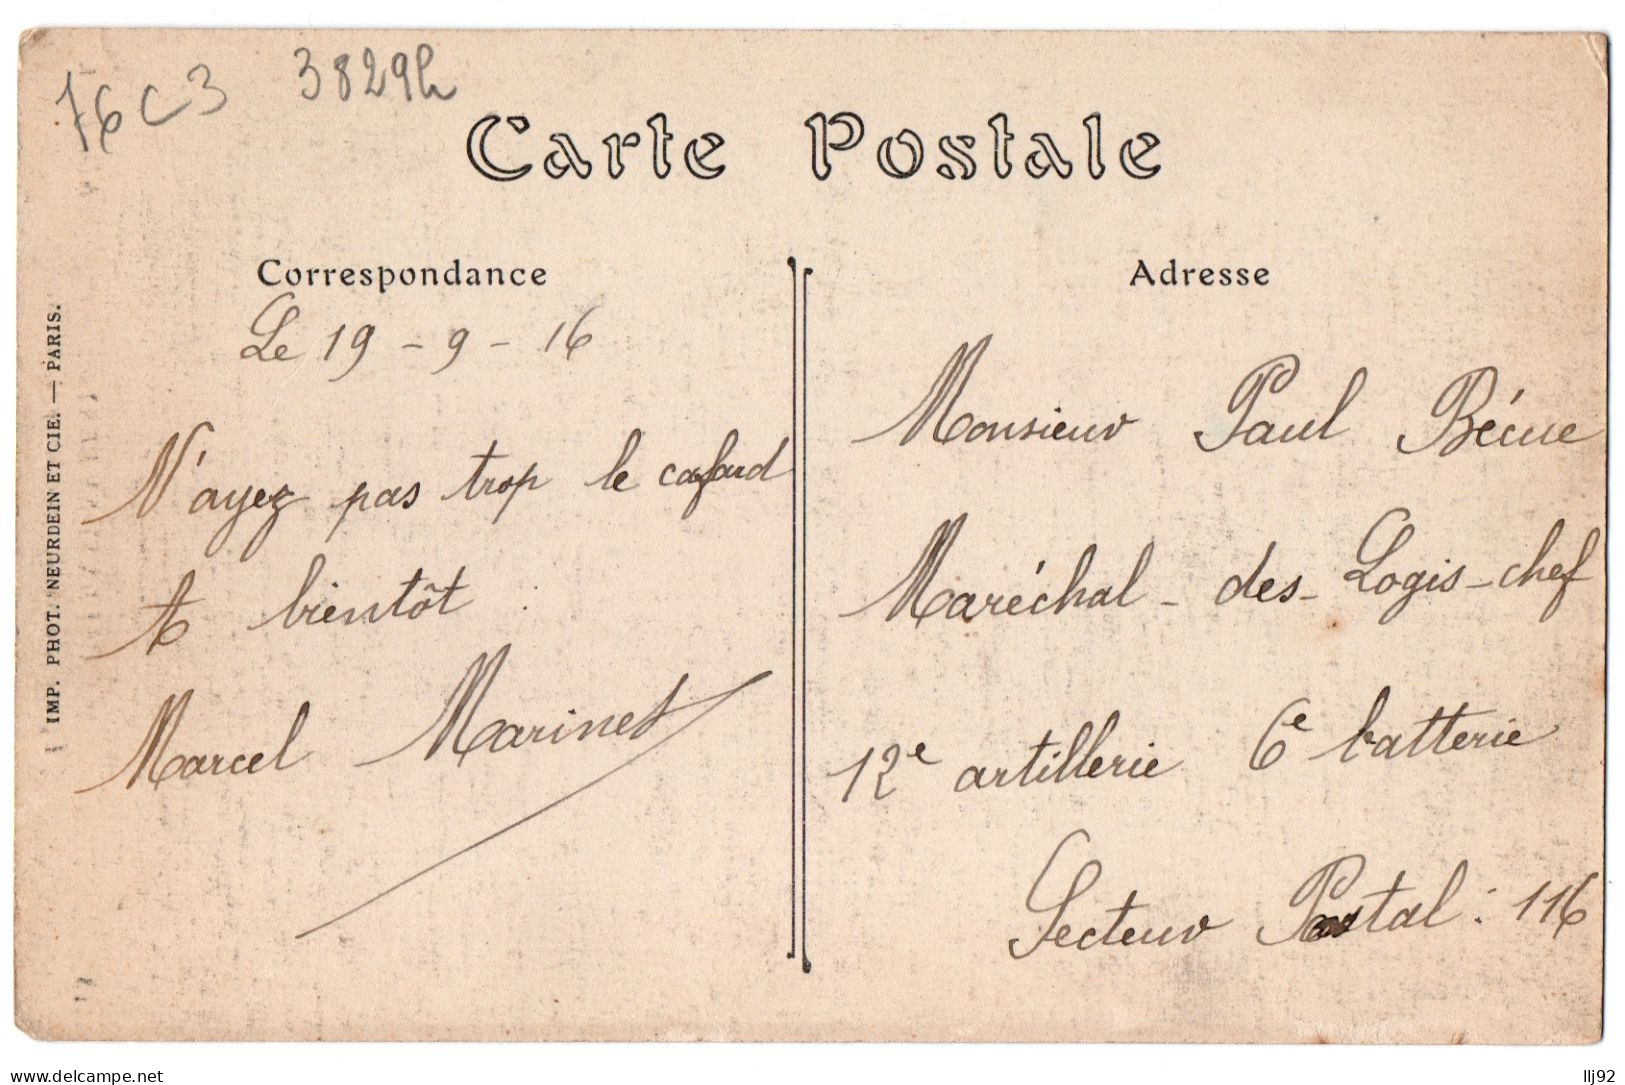 76C3 3829h
Carte Postale
Correspondance
Le 19 - 9 - 16
N'ayez pas trop le cafard
A bientôt
Marcel Marinet
Adresse
Monsieur Paul Bécue
Maréchal - des - Logis - chef
12e artillerie 6e batterie
Secteur Postal : 116
IMP. PHOT. NEURDEIN ET CIE. — PARIS.
www.delcampe.net
llj92